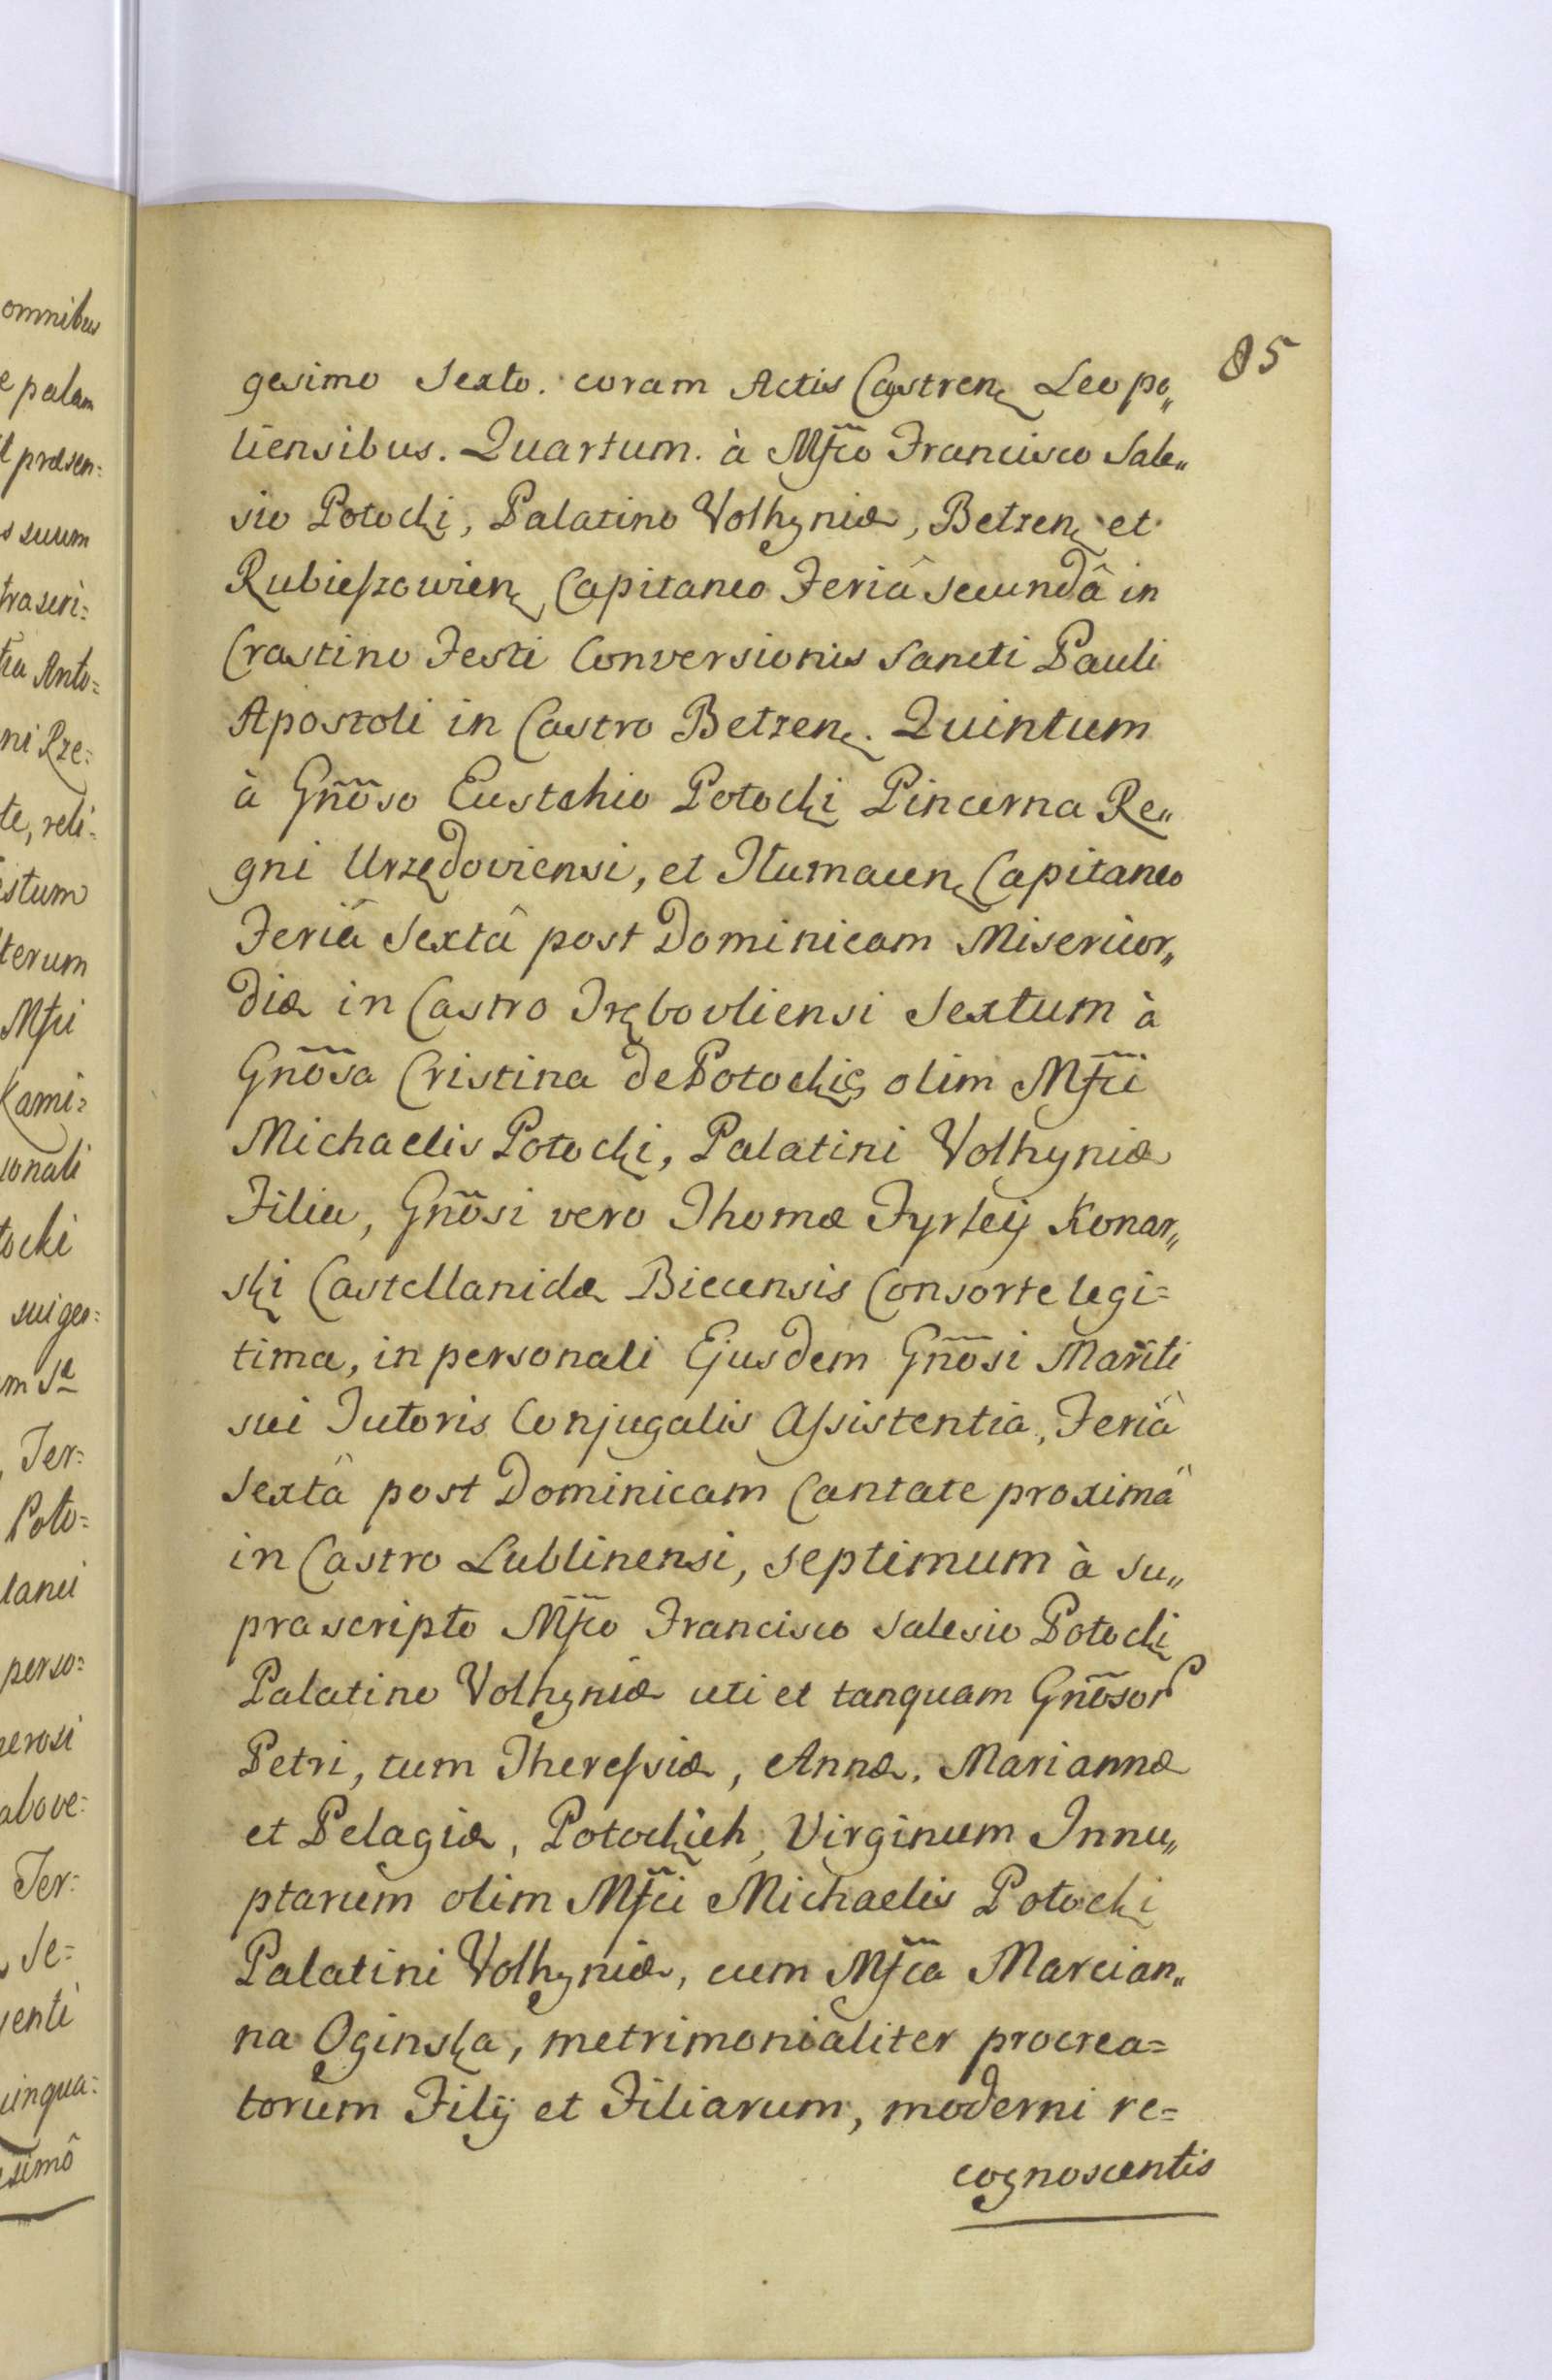 omnibus
e palam
t præsen:
s suum
traseri:
tia Anto=
ni Rze:
te, reli:
estum
terum
Mf̃ci
Kami:
sonali
tocki
sui gen:
m Sa
, Ter:
Poto=
tanei
perso:
nerosi
above:
Ter:
, Se=
venti
uinqua:
esimô
85
gesimo Sexto. coram Actis Castren, Leopo„
liensibus. Quartum. à Mf̃co Francisco Sale„
sio Potocki, Palatino Volhyniæ, Betzen, et
Rubieſzowien, Capitaneo Feriâ secundâ in
Crastino Festi Conversionis Sancti Pauli
Apostoli in Castro Betzen,. Quintum
à Gñõso Eustchio Potocki Pincerna Re„
gni Urzędoviensi, et Tłumacen, Capitaneo
Feriâ Sextâ post Dominicam Misericor„
diæ in Castro Trębovliensi Sextum à
Gñõsa Cristina de Potockie, olim Mf̃ci
Michaelis Potocki, Palatini Volhyniæ
Filia, Gñõsi vero Thomæ Fyrleÿ Konar„
ski Castellanidæ Biecensis Consorte legi=
tima, in personali Ejusdem Gñõsi Mariti
sui Tutoris Conjugalis Aſsistentia, Feriâ
Sextâ post Dominicam Cantate proximâ
in Castro Lublinensi, septimum à su„
prascripto Mf̃co Francisco Salesio Potocki
Palatino Volhyniæ uti et tanquam Gñõsor
Petri, tum Thereſsiæ, Annæ, Mariannæ
et Pelagiæ, Potockich, Virginum Innu„
ptarum olim Mf̃ci Michaelis Potocki
Palatini Volhyniæ, cum Mf̃ca Marcian„
na Oginska, metrimonialiter procrea=
torum Filÿ et Filiarum, moderni re=
cognoscentis